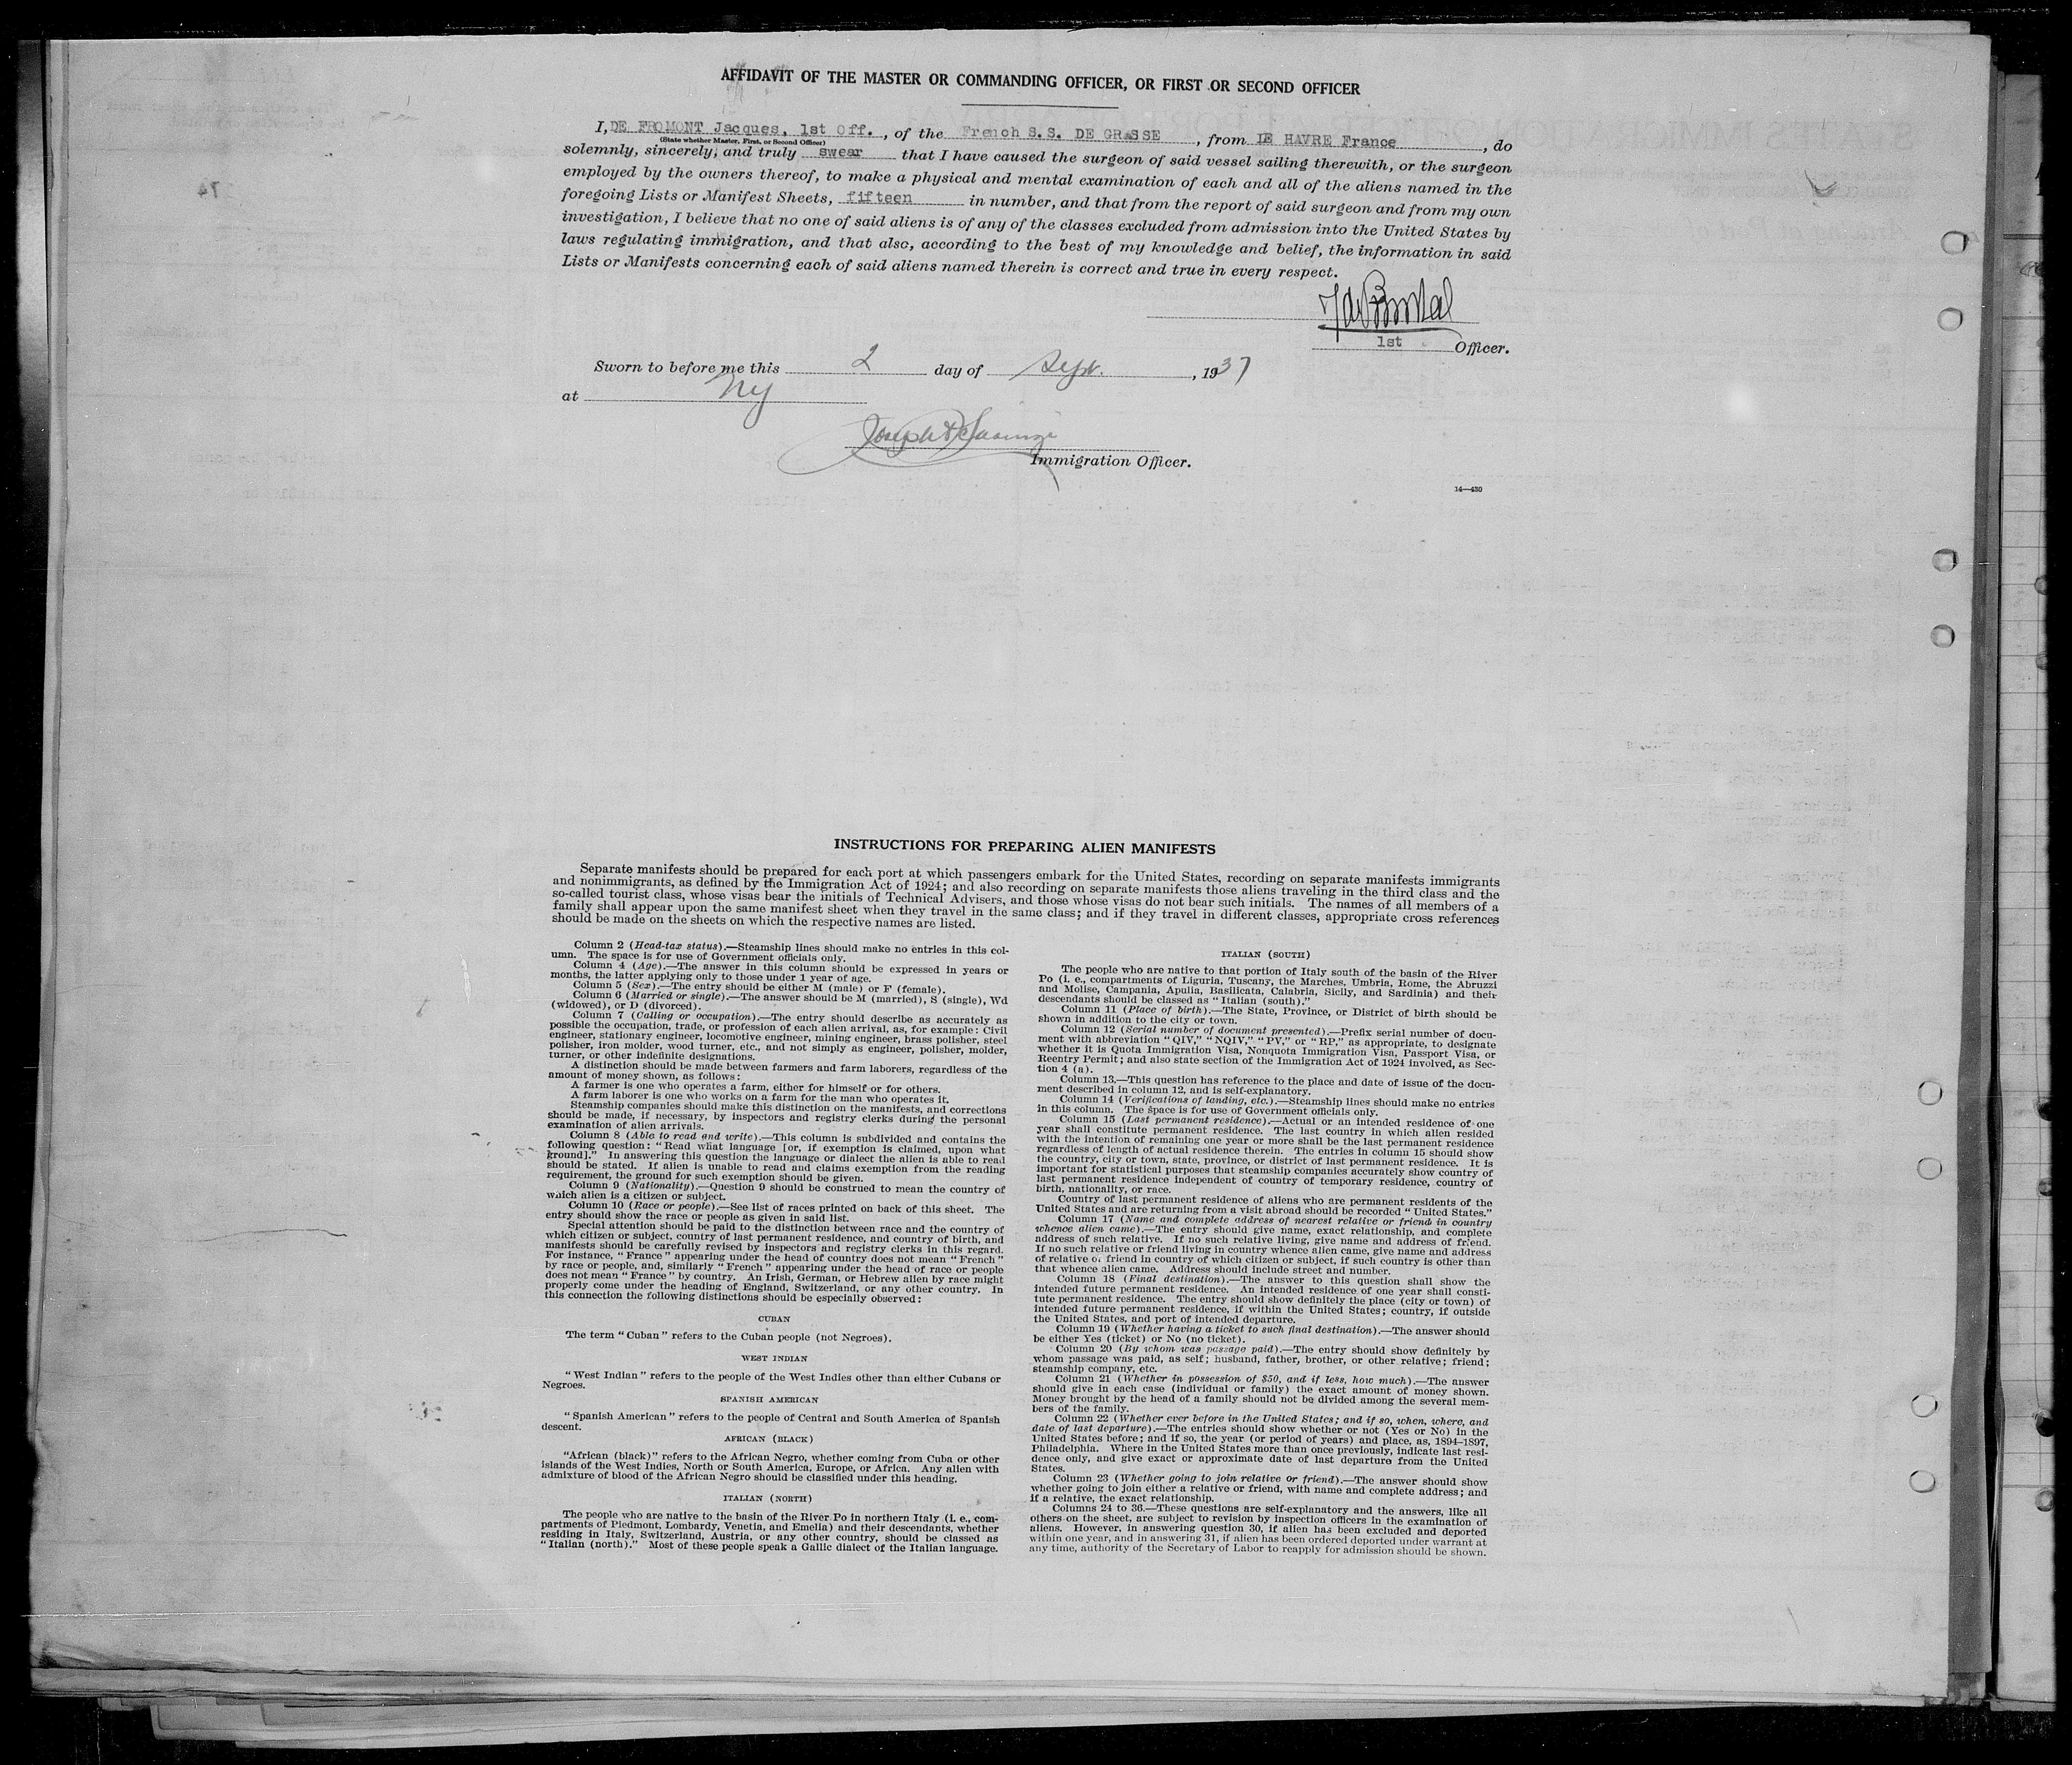 AFFIDAVIT OF THE MASTER OR COMMANDING OFFICER, OR FIRST OR SECOND OFFICER
I, DE FROMONT Jacques, 1st Off. , of the French S.S. DE GRASSE , from LE HAVRE France , do
(State whether Master, First, or Second Officer)
solemnly, sincerely, and truly swear that I have caused the surgeon of said vessel sailing therewith, or the surgeon
employed by the owners thereof, to make a physical and mental examination of each and all of the aliens named in the
foregoing Lists or Manifest Sheets, fifteen in number, and that from the report of said surgeon and from my own
investigation, I believe that no one of said aliens is of any of the classes excluded from admission into the United States by
laws regulating immigration, and that also, according to the best of my knowledge and belief, the information in said
Lists or Manifests concerning each of said aliens named therein is correct and true in every respect.
1st Officer.
Sworn to before me this 2 day of Sept. , 1937
at NY
Joseph
Immigration Officer.
14—430
INSTRUCTIONS FOR PREPARING ALIEN MANIFESTS
Separate manifests should be prepared for each port at which passengers embark for the United States, recording on separate manifests immigrants
and nonimmigrants, as defined by the Immigration Act of 1924; and also recording on separate manifests those aliens traveling in the third class and the
so-called tourist class, whose visas bear the initials of Technical Advisers, and those whose visas do not bear such initials. The names of all members of a
family shall appear upon the same manifest sheet when they travel in the same class; and if they travel in different classes, appropriate cross references
should be made on the sheets on which the respective names are listed.
Column 2 (Head-tax status).—Steamship lines should make no entries in this col-
umn. The space is for use of Government officials only.
Column 4 (Age).—The answer in this column should be expressed in years or
months, the latter applying only to those under 1 year of age.
Column 5 (Sex).—The entry should be either M (male) or F (female).
Column 6 (Married or single).—The answer should be M (married), S (single), Wd
(widowed), or D (divorced).
Column 7 (Calling or occupation).—The entry should describe as accurately as
possible the occupation, trade, or profession of each alien arrival, as, for example: Civil
engineer, stationary engineer, locomotive engineer, mining engineer, brass polisher, steel
polisher, iron molder, wood turner, etc., and not simply as engineer, polisher, molder,
turner, or other indefinite designations.
A distinction should be made between farmers and farm laborers, regardless of the
amount of money shown, as follows:
A farmer is one who operates a farm, either for himself or for others.
A farm laborer is one who works on a farm for the man who operates it.
Steamship companies should make this distinction on the manifests, and corrections
should be made, if necessary, by inspectors and registry clerks during the personal
examination of alien arrivals.
Column 8 (Able to read and write).—This column is subdivided and contains the
following question: “Read what language [or, if exemption is claimed, upon what
ground].” In answering this question the language or dialect the alien is able to read
should be stated. If alien is unable to read and claims exemption from the reading
requirement, the ground for such exemption should be given.
Column 9 (Nationality).—Question 9 should be construed to mean the country of
which alien is a citizen or subject.
Column 10 (Race or people).—See list of races printed on back of this sheet. The
entry should show the race or people as given in said list.
Special attention should be paid to the distinction between race and the country of
which citizen or subject, country of last permanent residence, and country of birth, and
manifests should be carefully revised by inspectors and registry clerks in this regard.
For instance, “France” appearing under the head of country does not mean “French”
by race or people, and, similarly “French” appearing under the head of race or people
does not mean “France” by country. An Irish, German, or Hebrew alien by race might
properly come under the heading of England, Switzerland, or any other country. In
this connection the following distinctions should be especially observed:
CUBAN
The term “Cuban” refers to the Cuban people (not Negroes).
WEST INDIAN
“West Indian” refers to the people of the West Indies other than either Cubans or
Negroes.
SPANISH AMERICAN
“Spanish American” refers to the people of Central and South America of Spanish
descent.
AFRICAN (BLACK)
“African (black)” refers to the African Negro, whether coming from Cuba or other
islands of the West Indies, North or South America, Europe, or Africa. Any alien with
admixture of blood of the African Negro should be classified under this heading.
ITALIAN (NORTH)
The people who are native to the basin of the River Po in northern Italy (i. e., com-
partments of Piedmont, Lombardy, Venetia, and Emelia) and their descendants, whether
residing in Italy, Switzerland, Austria, or any other country, should be classed as
“Italian (north).” Most of these people speak a Gallic dialect of the Italian language.
ITALIAN (SOUTH)
The people who are native to that portion of Italy south of the basin of the River
Po (i. e., compartments of Liguria, Tuscany, the Marches, Umbria, Rome, the Abruzzi
and Molise, Campania, Apulia, Basilicata, Calabria, Sicily, and Sardinia) and their
descendants should be classed as “Italian (south).”
Column 11 (Place of birth).—The State, Province, or District of birth should be
shown in addition to the city or town.
Column 12 (Serial number of document presented).—Prefix serial number of docu-
ment with abbreviation “QIV,” “NQIV,” “PV,” or “RP,” as appropriate, to designate
whether it is Quota Immigration Visa, Nonquota Immigration Visa, Passport Visa, or
Reentry Permit; and also state section of the Immigration Act of 1924 involved, as Sec-
tion 4 (a).
Column 13.—This question has reference to the place and date of issue of the docu-
ment described in column 12, and is self-explanatory.
Column 14 (Verifications of landing, etc.).—Steamship lines should make no entries
in this column. The space is for use of Government officials only.
Column 15 (Last permanent residence).—Actual or an intended residence of one
year shall constitute permanent residence. The last country in which alien resided
with the intention of remaining one year or more shall be the last permanent residence
regardless of length of actual residence therein. The entries in column 15 should show
the country, city or town, state, province, or district of last permanent residence. It is
important for statistical purposes that steamship companies accurately show country of
last permanent residence independent of country of temporary residence, country of
birth, nationality, or race.
Country of last permanent residence of aliens who are permanent residents of the
United States and are returning from a visit abroad should be recorded “United States.”
Column 17 (Name and complete address of nearest relative or friend in country
whence alien came).—The entry should give name, exact relationship, and complete
address of such relative. If no such relative living, give name and address of friend.
If no such relative or friend living in country whence alien came, give name and address
of relative or friend in country of which citizen or subject, if such country is other than
that whence alien came. Address should include street and number.
Column 18 (Final destination).—The answer to this question shall show the
intended future permanent residence. An intended residence of one year shall consti-
tute permanent residence. The entry should show definitely the place (city or town) of
intended future permanent residence, if within the United States; country, if outside
the United States, and port of intended departure.
Column 19 (Whether having a ticket to such final destination).—The answer should
be either Yes (ticket) or No (no ticket).
Column 20 (By whom was passage paid).—The entry should show definitely by
whom passage was paid, as self; husband, father, brother, or other relative; friend;
steamship company, etc.
Column 21 (Whether in possession of $50, and if less, how much).—The answer
should give in each case (individual or family) the exact amount of money shown.
Money brought by the head of a family should not be divided among the several mem-
bers of the family.
Column 22 (Whether ever before in the United States; and if so, when, where, and
date of last departure).—The entries should show whether or not (Yes or No) in the
United States before; and if so, the year (or period of years) and place, as, 1894–1897,
Philadelphia. Where in the United States more than once previously, indicate last resi-
dence only, and give exact or approximate date of last departure from the United
States.
Column 23 (Whether going to join relative or friend).—The answer should show
whether going to join either a relative or friend, with name and complete address; and
if a relative, the exact relationship.
Columns 24 to 36.—These questions are self-explanatory and the answers, like all
others on the sheet, are subject to revision by inspection officers in the examination of
aliens. However, in answering question 30, if alien has been excluded and deported
within one year, and in answering 31, if alien has been ordered deported under warrant at
any time, authority of the Secretary of Labor to reapply for admission should be shown.